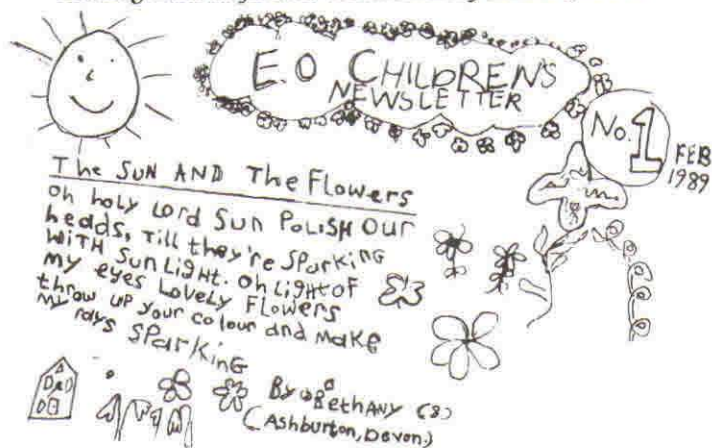 E.O CHILDREN'S
NEWSLETTER
No. 1
FEB
1989
The SUN AND The Flowers
Oh holy Lord Sun POLISH OUR
heads, Till they're SPARKING
WITH SUNLIGHT. Oh LIGHT OF
My eyes Lovely Flowers
throw up your colour and MAKE
My rays SPARKING
By Bethany (8)
(Ashburton, Devon.)